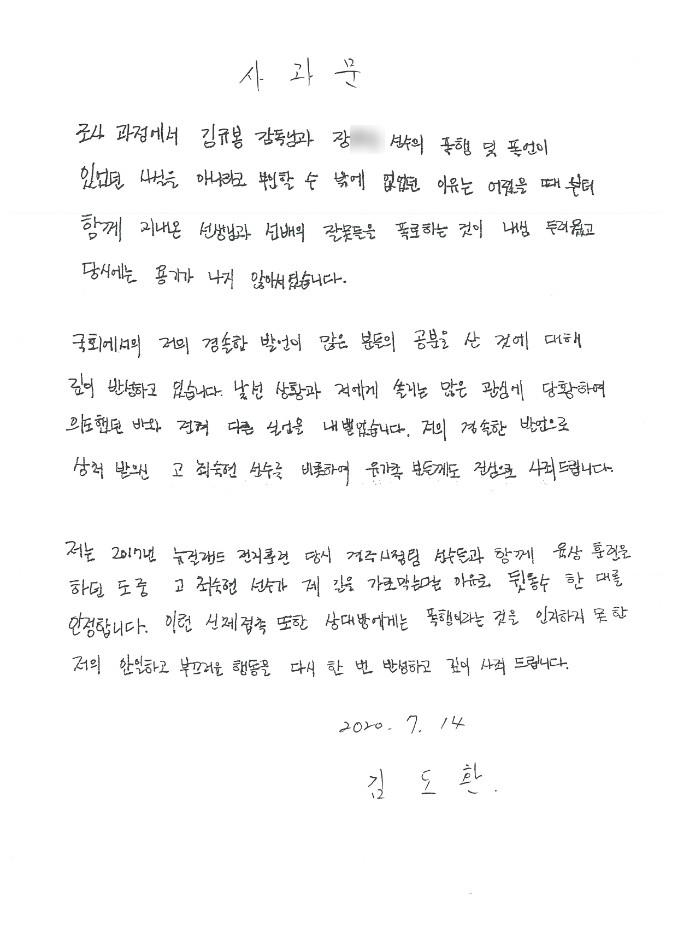 사 과 문
조사 과정에서 김규봉 감독님과 장 선수의 폭행 및 폭언이
있었던 사실을 아니라고 부인할 수 밖에 없었던 이유는 어렸을 때 부터
함께 지내온 선생님과 선배의 잘못들을 폭로하는 것이 내심 두려웠고
당시에는 용기가 나지 않아서 였습니다.
국회에서의 저의 경솔한 발언이 많은 분들의 공분을 산 것에 대해
깊이 반성하고 있습니다. 낯선 상황과 저에게 쏠리는 많은 관심에 당황하여
의도했던 바와 전혀 다른 실언을 내뱉었습니다. 저의 경솔한 발언으로
상처 받으신 고 최숙현 선수를 비롯하여 유가족 분들께도 진심으로 사죄드립니다.
저는 2017년 뉴질랜드 전지훈련 당시 경주시청팀 선수들과 함께 육상 훈련을
하던 도중 고 최숙현 선수가 제 길을 가로막는다는 이유로 뒷통수 한 대를
인정합니다. 이런 신체접촉 또한 상대방에게는 폭행이라는 것을 인지하지 못한
저의 안일하고 부끄러운 행동을 다시 한 번 반성하고 깊이 사죄 드립니다.
2020. 7. 14
김 도 환.